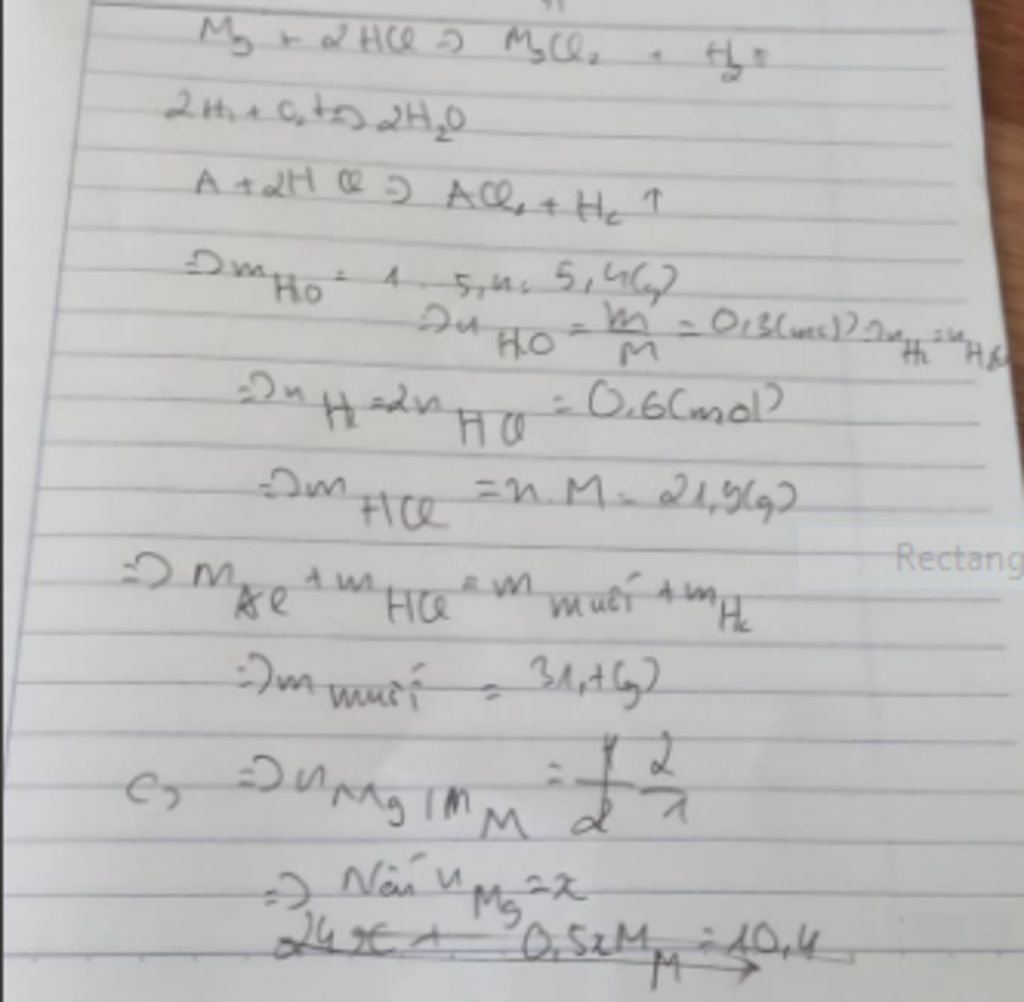 Mg + 2HCl => MgCl₂ + H₂↑
2H₂ + O₂ t=> 2H₂O
A + 2HCl => ACl₂ + H₂ ↑
=> m H₂O = 1 . 5,4 = 5,4(g)
=> n H₂O = m/M = 0,3(mol) => n H₂ = n H₂O
=> n H₂ = 2n HCl = 0.6(mol)
=> m HCl = n.M = 21,9(g)
Rectang
=> m + m HCl = m muối + m H₂
=> m muối = 31,7(g)
c, => n Mg / n M = 2/1
=> n Mg = x
24x + 0,5xM M = 10,4